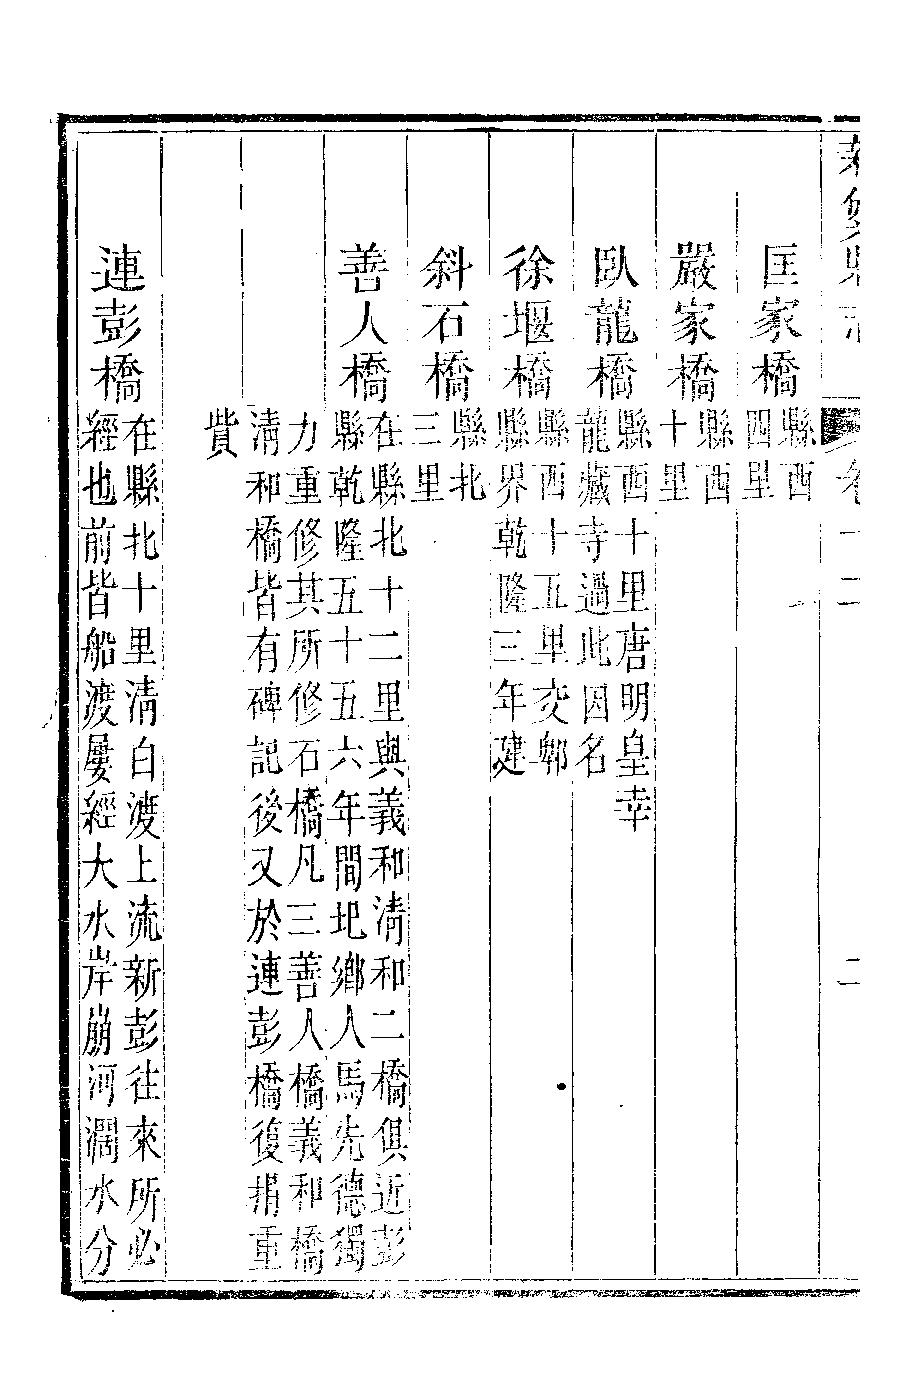 新繁縣志
匡家橋
縣西
四里
嚴家橋
縣西
十里
臥龍橋
縣西十里唐明皇幸
龍藏寺過此因名
徐堰橋
縣西十五里交郫
縣界乾隆三年建
斜石橋
縣北
三里
善人橋
在縣北十二里與義和清和二橋俱近彭
縣乾隆五十五六年間圮鄉人馬先德獨
力重修其所修石橋凡三善人橋義和橋
清和橋皆有碑記後又於連彭橋復捐重
貲
連彭橋
在縣北十里清白渡上流新彭往來所必
經也前皆船渡屢經大水岸崩河濶水分